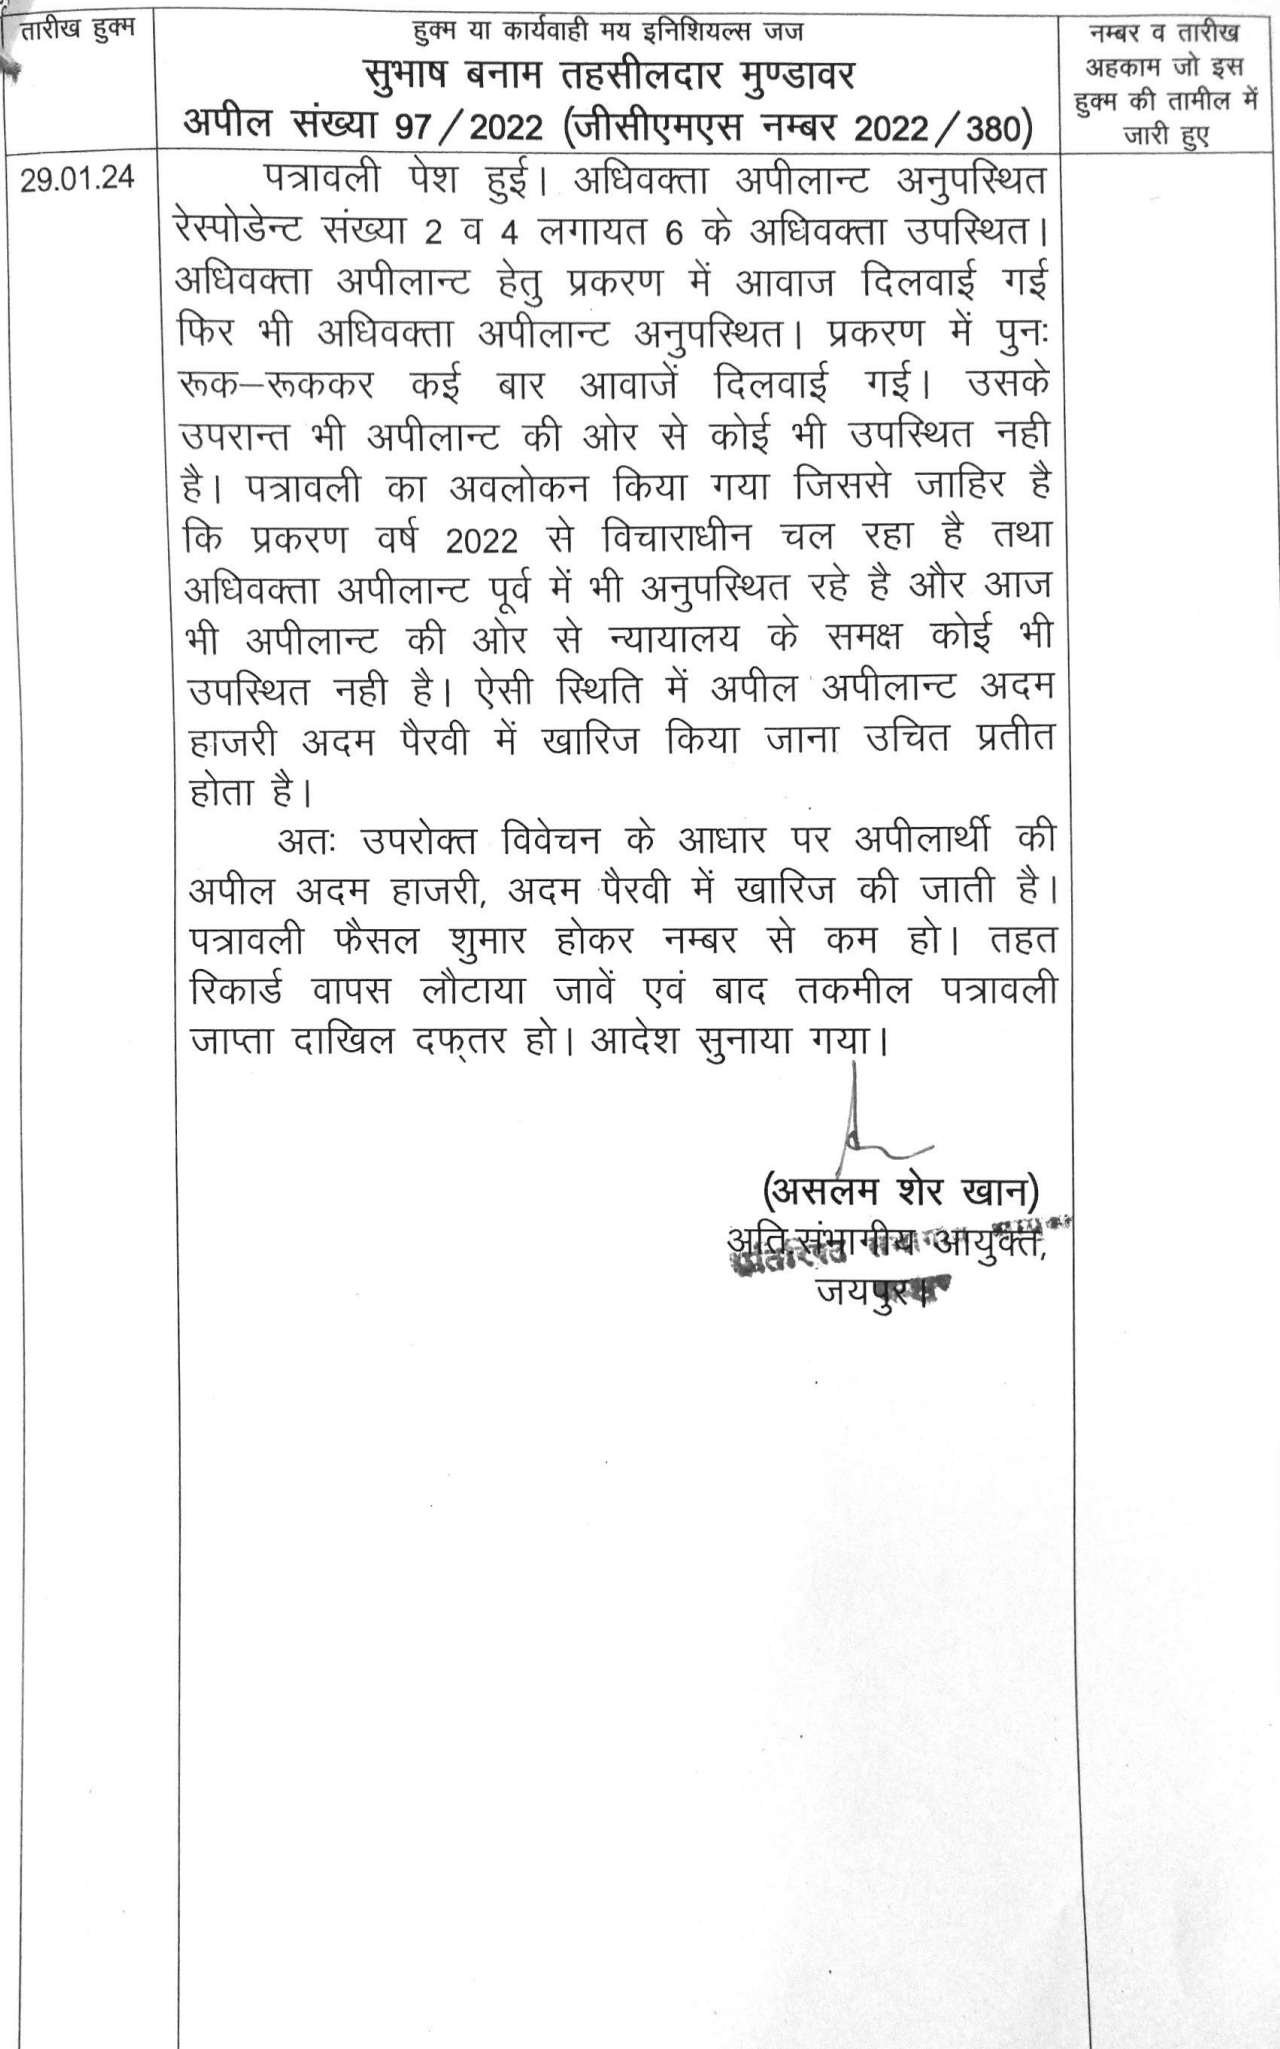 तारीख हुक्म
हुक्म या कार्यवाही मय इनिशियल्स जज
सुभाष बनाम तहसीलदार मुण्डावर
अपील संख्या 97/2022 (जीसीएमएस नम्बर 2022/380)
नम्बर व तारीख
अहकाम जो इस
हुक्म की तामील में
जारी हुए
29.01.24
पत्रावली पेश हुई। अधिवक्ता अपीलान्ट अनुपस्थित
रेस्पोडेन्ट संख्या 2 व 4 लगायत 6 के अधिवक्ता उपस्थित।
अधिवक्ता अपीलान्ट हेतु प्रकरण में आवाज दिलवाई गई
फिर भी अधिवक्ता अपीलान्ट अनुपस्थित। प्रकरण में पुनः
रूक–रूककर कई बार आवाजें दिलवाई गई। उसके
उपरान्त भी अपीलान्ट की ओर से कोई भी उपस्थित नही
है। पत्रावली का अवलोकन किया गया जिससे जाहिर है
कि प्रकरण वर्ष 2022 से विचाराधीन चल रहा है तथा
अधिवक्ता अपीलान्ट पूर्व में भी अनुपस्थित रहे है और आज
भी अपीलान्ट की ओर से न्यायालय के समक्ष कोई भी
उपस्थित नही है। ऐसी स्थिति में अपील अपीलान्ट अदम
हाजरी अदम पैरवी में खारिज किया जाना उचित प्रतीत
होता है।
अतः उपरोक्त विवेचन के आधार पर अपीलार्थी की
अपील अदम हाजरी, अदम पैरवी में खारिज की जाती है।
पत्रावली फैसल शुमार होकर नम्बर से कम हो। तहत
रिकार्ड वापस लौटाया जावें एवं बाद तकमील पत्रावली
जाप्ता दाखिल दफ्तर हो। आदेश सुनाया गया।
(असलम शेर खान)
अति.संभागीय आयुक्त,
जयपुर।